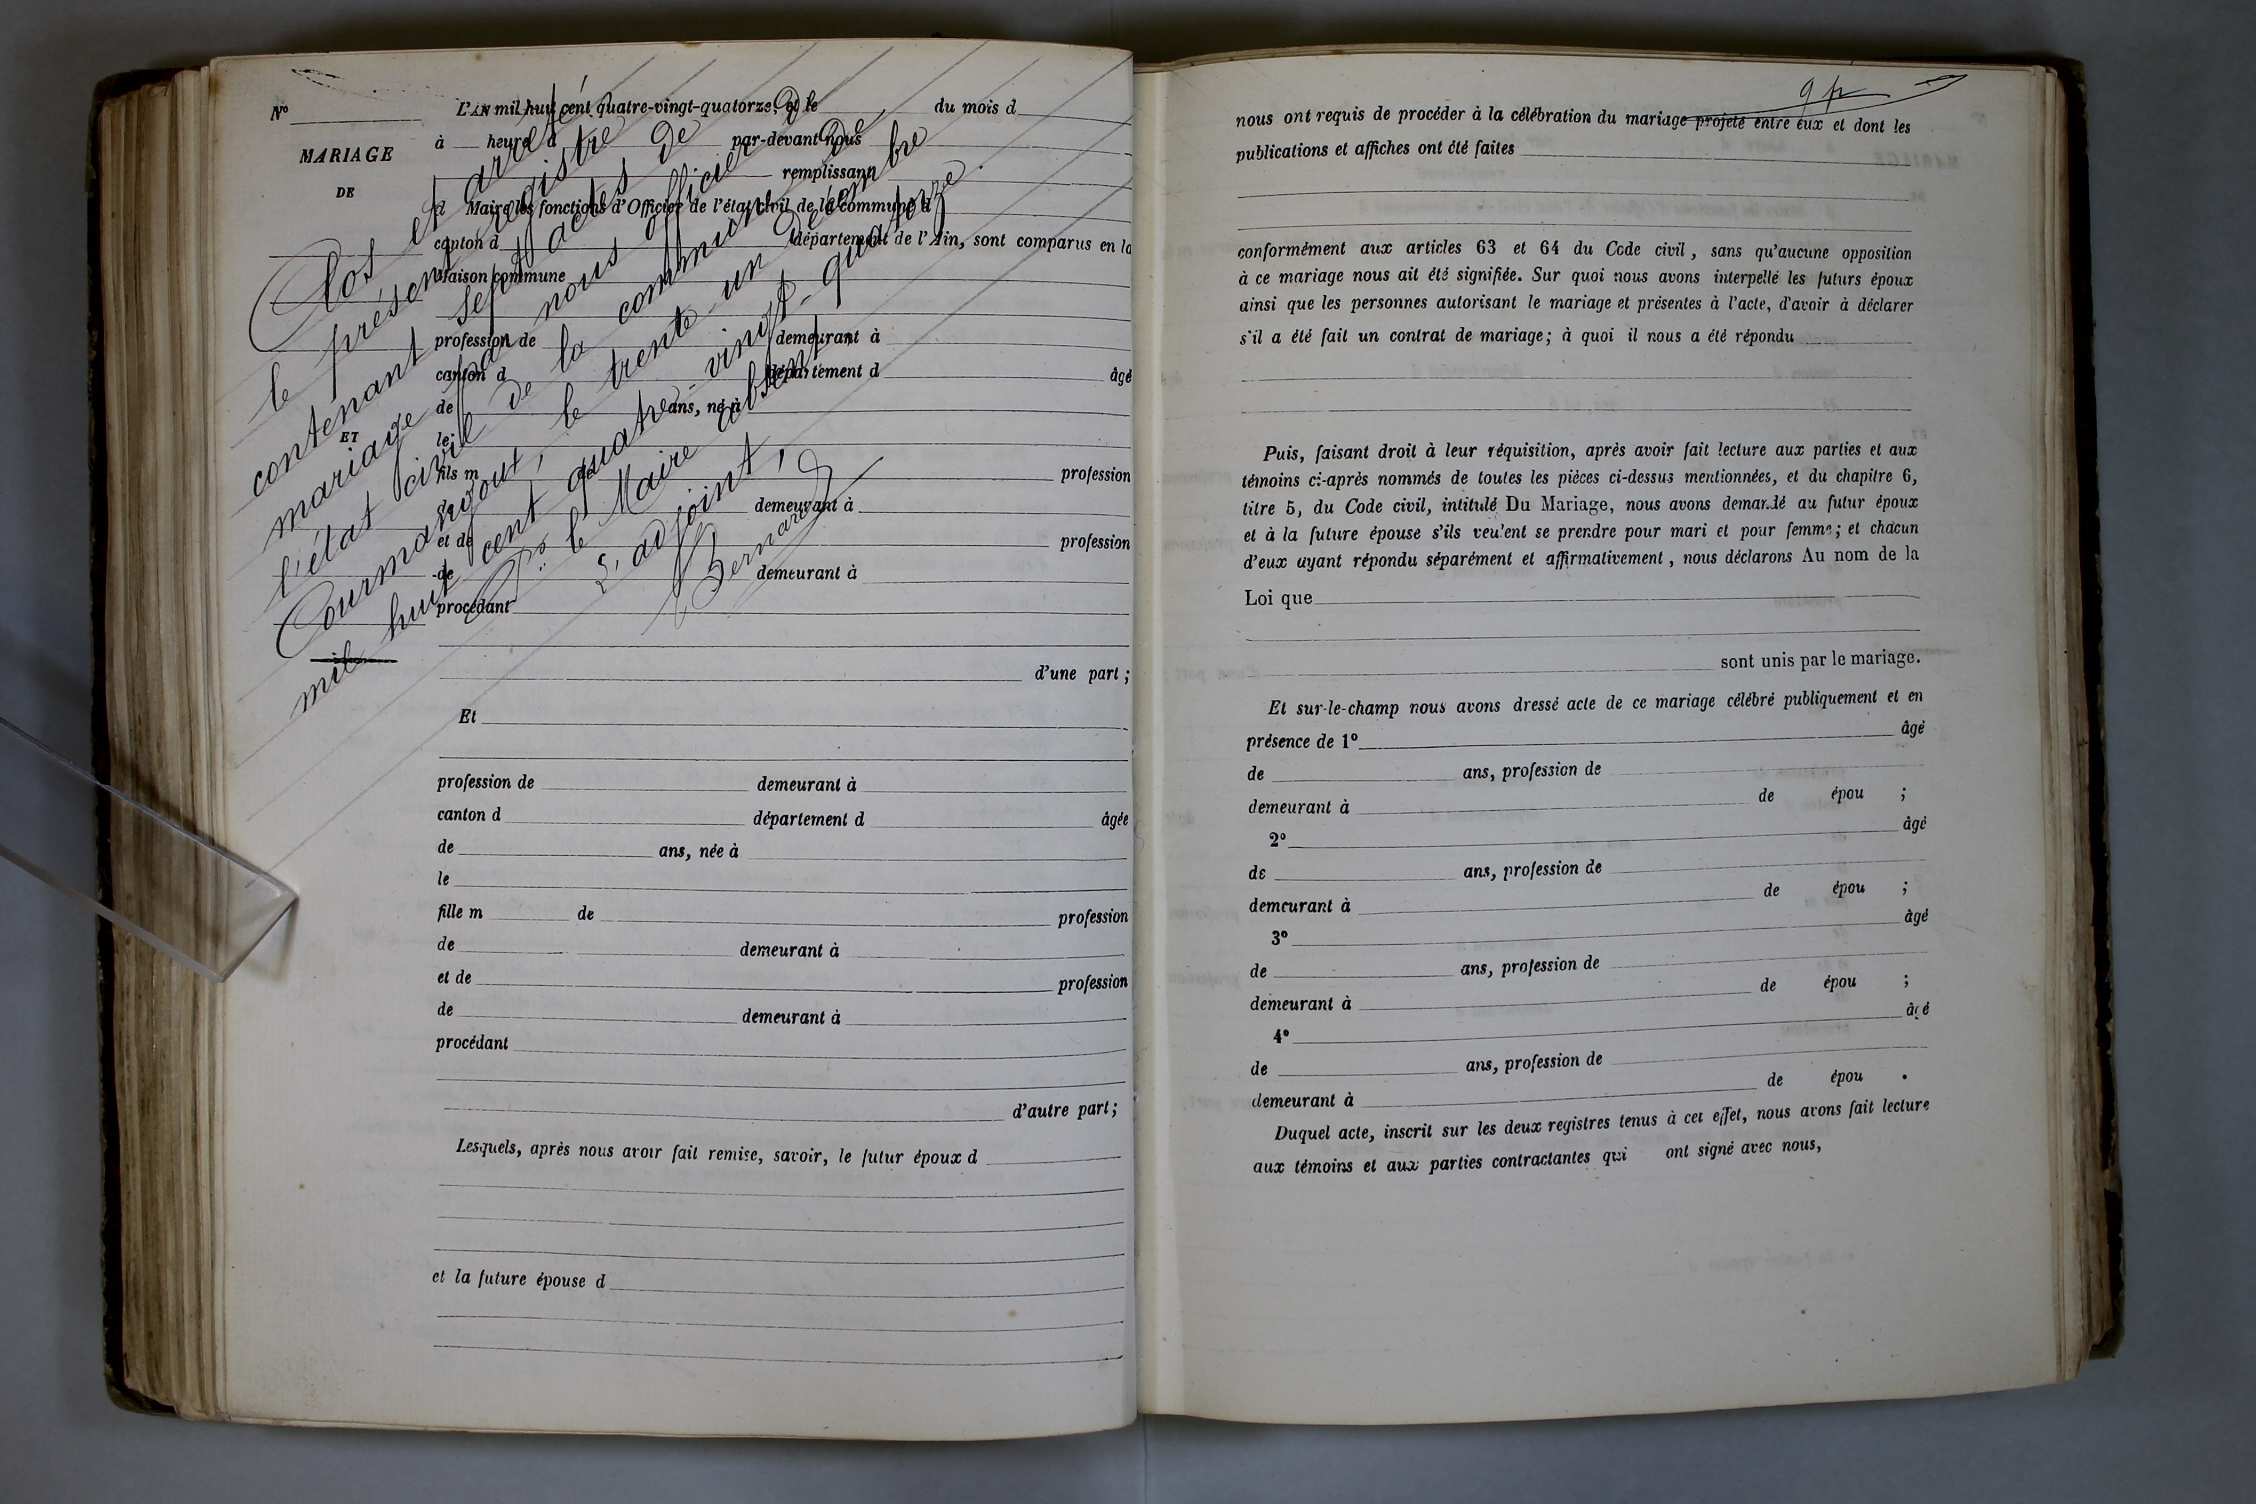 N°
MARIAGE
DE
ET
L'AN mil huit cent quatre-vingt-quatorze, et le du mois d
à heure d par-devant nous
remplissant
d Maire les fonctions d'Officier de l'état civil de la commune d
canton d département de l'Ain, sont comparus en la
Maison commune
profession de demeurant à
canton d département d âgé
de ans, né à
le
fils m de profession
de demeurant à
et de profession
de demeurant à
procédant
d'une part ;
Et
profession de demeurant à
canton d département d âgée
de ans, née à
le
fille m de profession
de demeurant à
et de profession
de demeurant à
procédant
d'autre part ;
Lesquels, après nous avoir fait remise, savoir, le futur époux d
et la future épouse d
Clos et arrêté
le présent registre
contenant sept actes de
mariage par nous officier de
l'état civil de la commune de
Courmangoux, le trente-un décembre
mil huit cent quatre-vingt-quatorze.
Pr le Maire absent,
L'adjoint,
Bernard
nous ont requis de procéder à la célébration du mariage projeté entre eux et dont les
publications et affiches ont été faites
conformément aux articles 63 et 64 du Code civil, sans qu'aucune opposition
à ce mariage nous ait été signifiée. Sur quoi nous avons interpellé les futurs époux
ainsi que les personnes autorisant le mariage et présentes à l'acte, d'avoir à déclarer
s'il a été fait un contrat de mariage ; à quoi il nous a été répondu
Puis, faisant droit à leur réquisition, après avoir fait lecture aux parties et aux
témoins ci-après nommés de toutes les pièces ci-dessus mentionnées, et du chapitre 6,
titre 5, du Code civil, intitulé Du Mariage, nous avons demandé au futur époux
et à la future épouse s'ils veulent se prendre pour mari et pour femme ; et chacun
d'eux ayant répondu séparément et affirmativement, nous déclarons Au nom de la
Loi que
sont unis par le mariage.
Et sur-le-champ nous avons dressé acte de ce mariage célébré publiquement et en
présence de 1° âgé
de ans, profession de
demeurant à de épou ;
2° âgé
de ans, profession de
demeurant à de épou ;
3° âgé
de ans, profession de
demeurant à de épou ;
4° âgé
de ans, profession de
demeurant à de épou .
Duquel acte, inscrit sur les deux registres tenus à cet effet, nous avons fait lecture
aux témoins et aux parties contractantes qui ont signé avec nous,